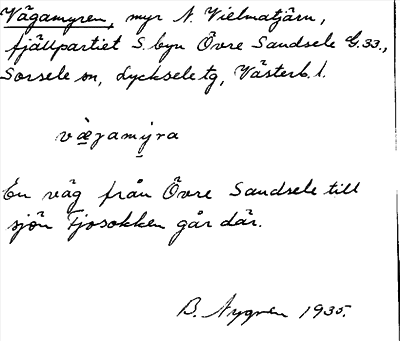 Vägamyren, myr N. Vielmatjärn,
fjällpartiet S. byn Övre Sandsele G.33.,
Sorsele sn, Lycksele tg, Västerb. l.
vægamy̆ra
En väg från Övre Sandsele till
sjön Tjosokken går där.
B. Nygren 1935.